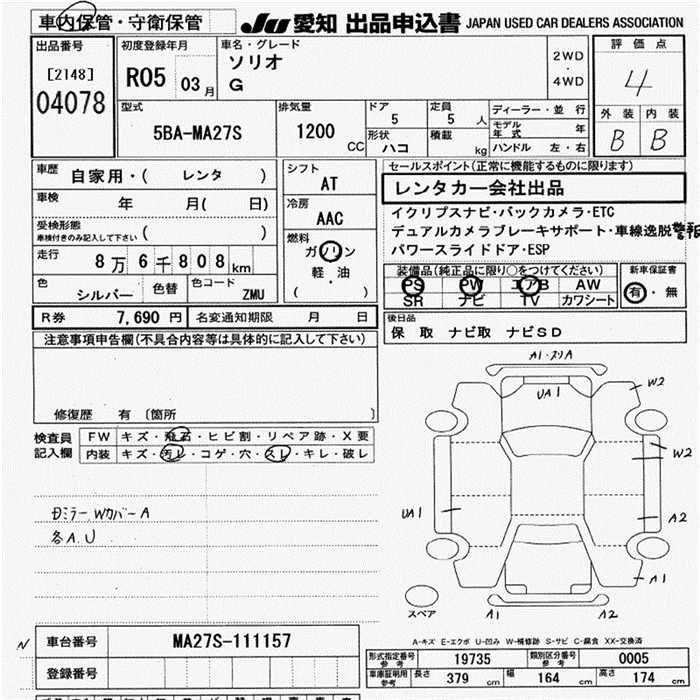 車内保管・守衛保管
JU 愛知 出品申込書 JAPAN USED CAR DEALERS ASSOCIATION
出品番号
[2148]
04078
初度登録年月
R05 03月
車名・グレード
ソリオ
G
2WD
・
4WD
評価点
4
外装 内装
B B
型式
5BA-MA27S
排気量
1200 CC
ドア
5
定員
5 人
形状
ハコ
積載
kg
ディーラー・並行
モデル年式 年
ハンドル 左・右
車歴
自家用・( レンタ )
車検 年 月( 日)
受検形態
車検付きのみ記入して下さい ( )
走行
8万6千808km
色
シルバー
色替
色コード
ZMU
シフト
AT
冷房
AAC
燃料
ガソリン
軽・油
( )
セールスポイント(正常に機能するものに限ります)
レンタカー会社出品
イクリプスナビ・バックカメラ・ETC
デュアルカメラブレーキサポート・車線逸脱警報
パワースライドドア・ESP
装備品(純正品に限り○をつけてください)
PS PW エアB AW
SR ナビ TV カワシート
新車保証書
有・無
R券 7,690 円 名変通知期限 月 日
後日品
保 取 ナビ取 ナビSD
注意事項申告欄(不具合内容等は具体的に記入して下さい)
修復歴 有 〔箇所 〕
検査員
記入欄
FW キズ・飛石・ヒビ割・リペア跡・X要
内装 キズ・汚レ・コゲ・穴・スレ・キレ・破レ
Dミラー Wカバー A
各A.U
A1・スリA
UA1
W2
W2
UA1
A2
A1
スペア
A1 A2
A-キズ E-エクボ U-凹み W-補修跡 S-サビ C-腐食 XX-交換済
N
車台番号 MA27S-111157
登録番号
形式指定番号
参考
19735
類別区分番号
参考
0005
車庫証明用
参考
長さ 379 cm 幅 164 cm 高さ 174 cm